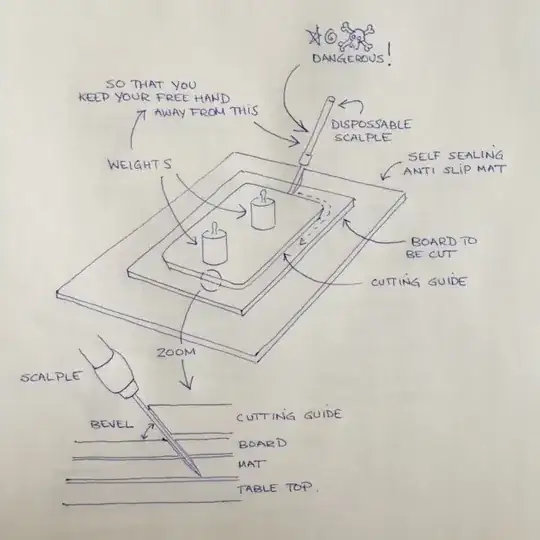 DANGEROUS!
SO THAT YOU
KEEP YOUR FREE HAND
AWAY FROM THIS
DISPOSSABLE
SCALPLE
WEIGHTS
SELF SEALING
ANTI SLIP MAT
BOARD TO
BE CUT
CUTTING GUIDE
ZOOM
SCALPLE
BEVEL
CUTTING GUIDE
BOARD
MAT
TABLE TOP.